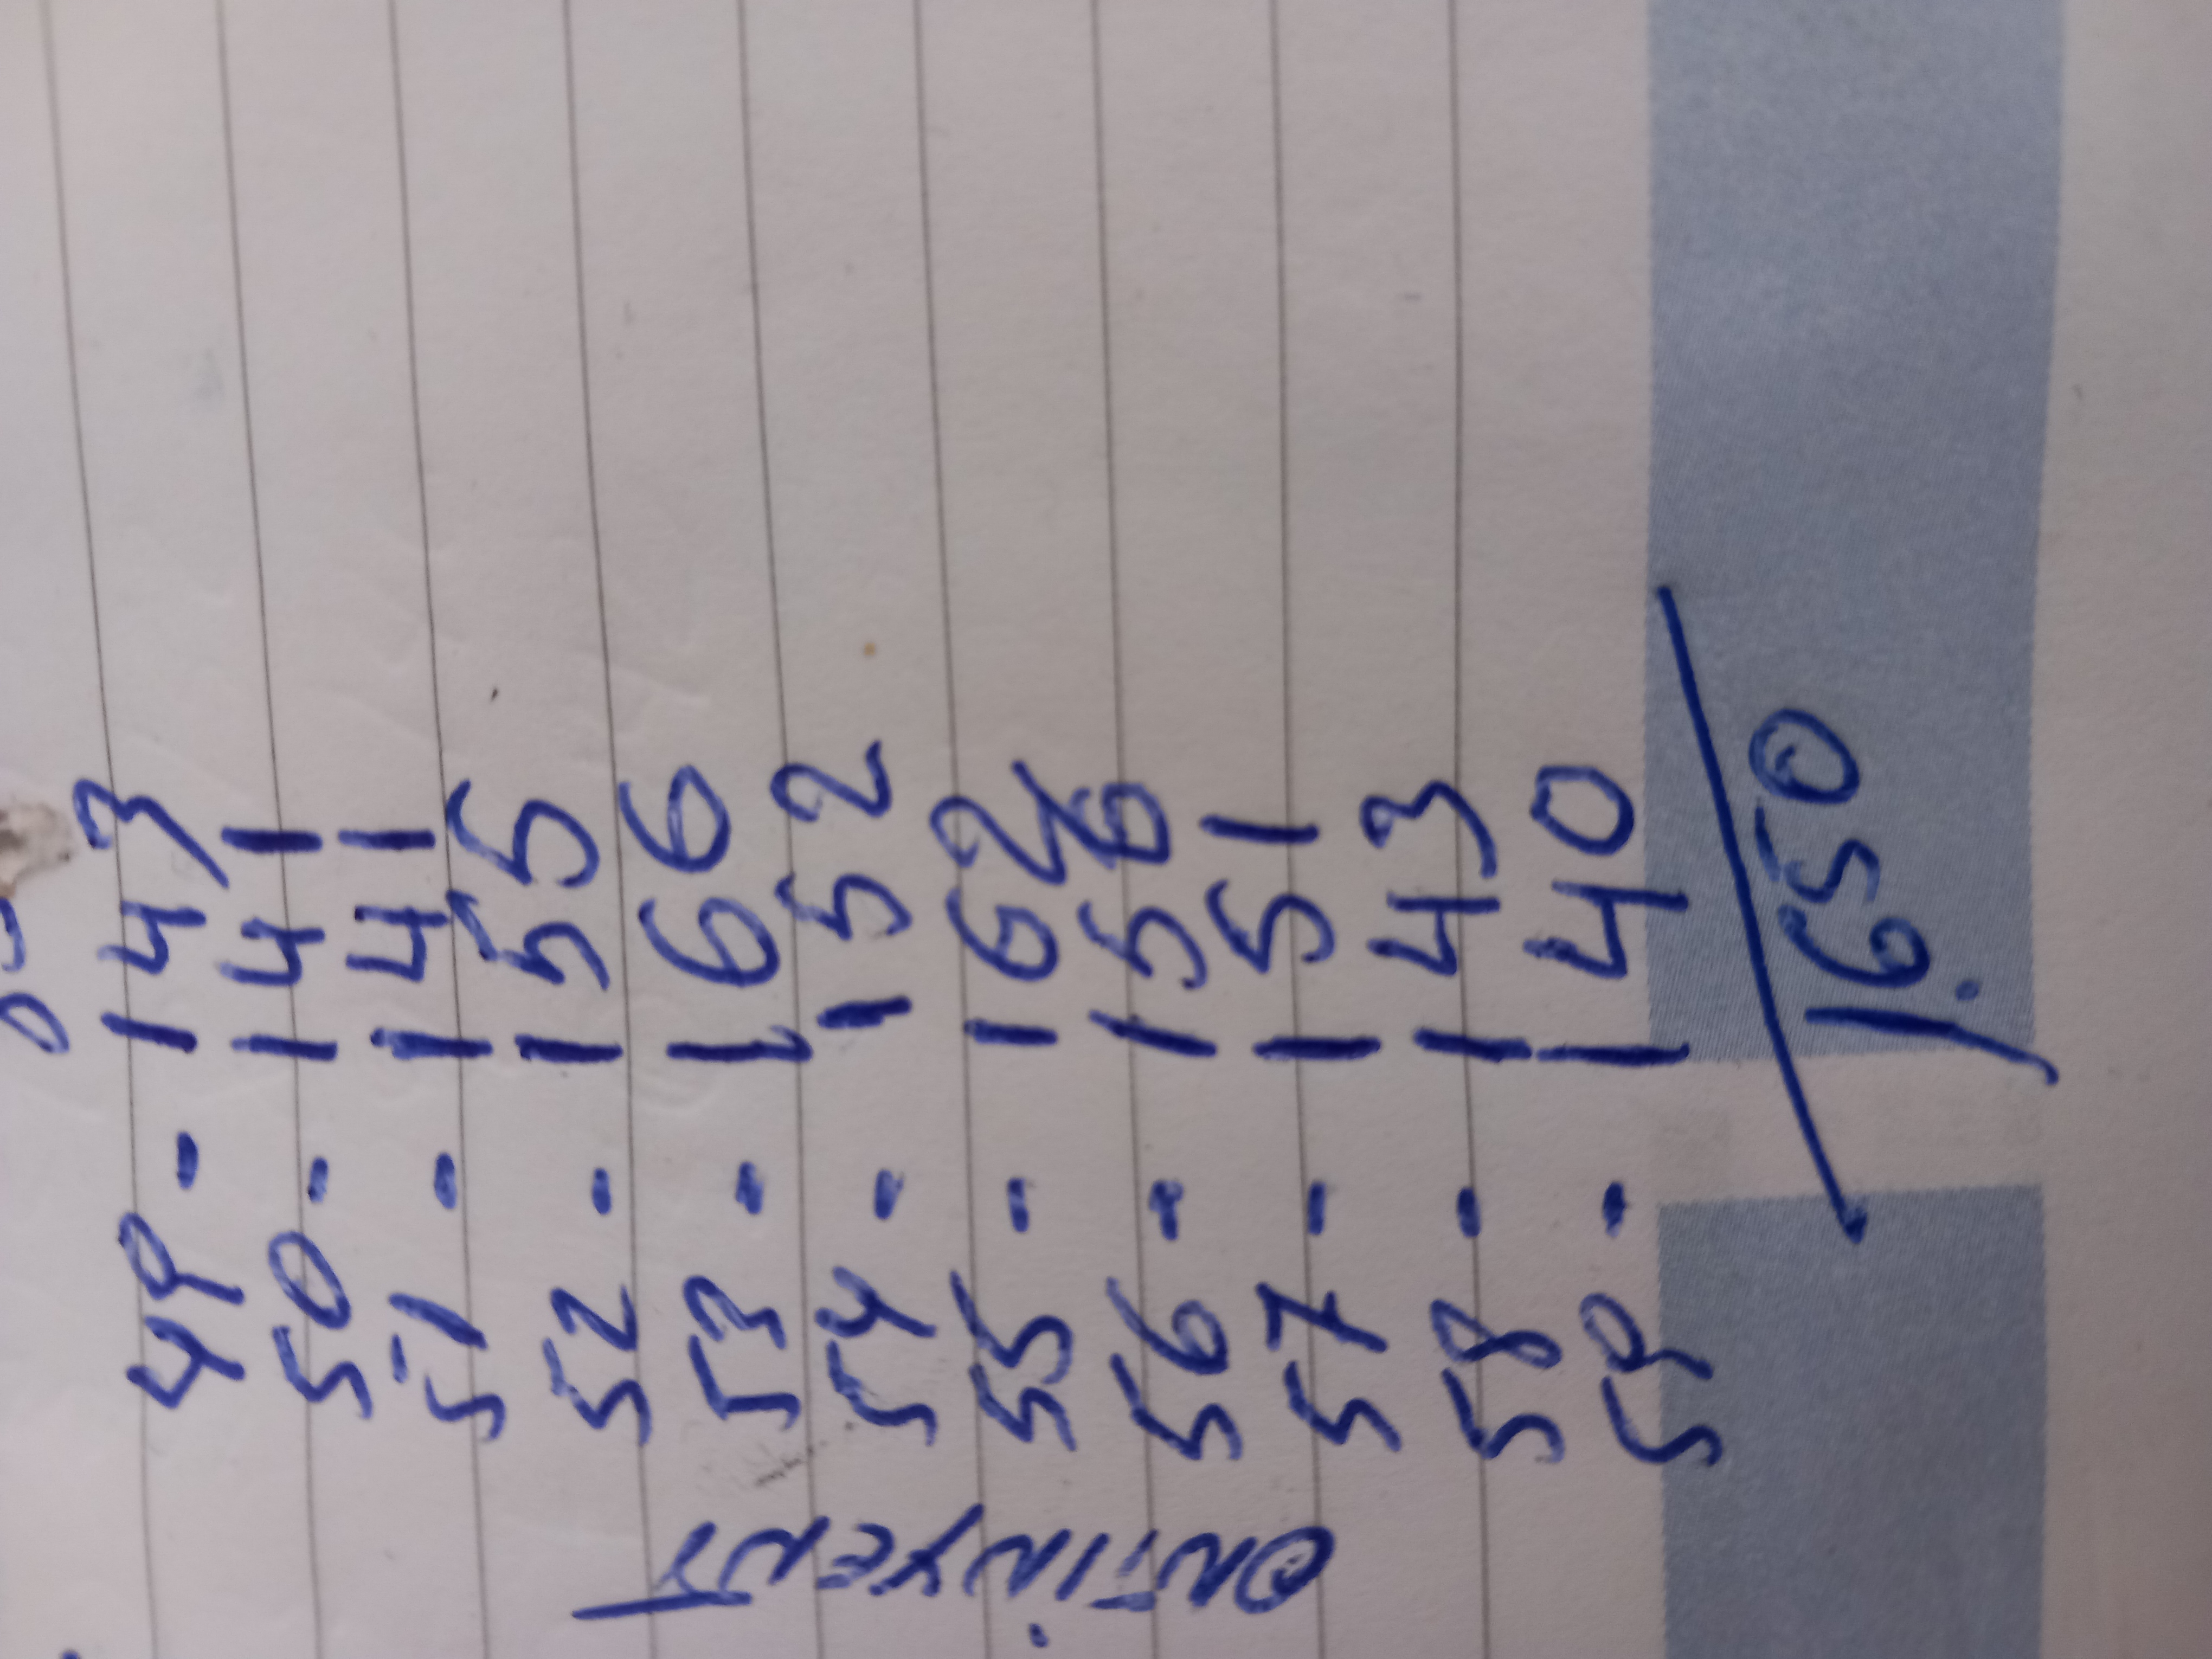 49 - 143
50 - 141
51 - 141
52 - 155
53 - 166
54 - 152
55 - 162
56 - 156
57 - 151
58 - 143
59 - 140
1.650
ONTINYENT